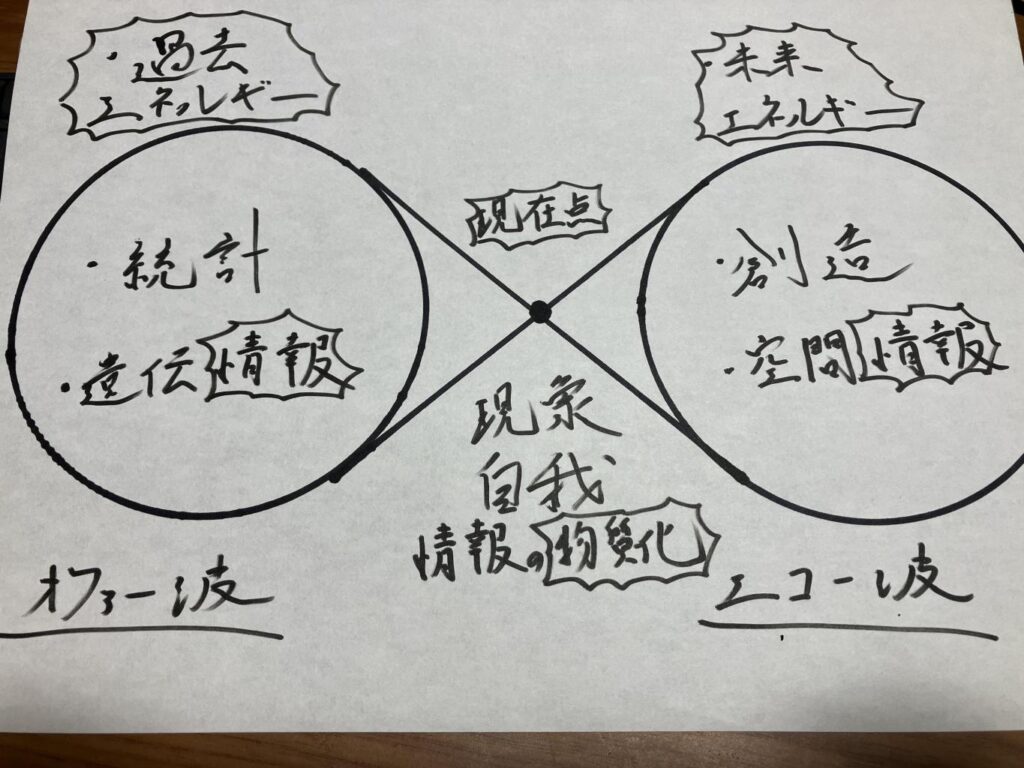 ・過去
エネルギー
・未来
エネルギー
現在点
・統計
・遺伝情報
・創造
・空間情報
現象
自我
情報の物質化
オファー波
エコー波